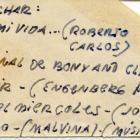 CHAR:
MI VIDA... (ROBERTO
CARLOS)
NAL DE BONY AND CL
IR - (ENGENBERG H
OL MIERCOLES - (
O - (MALVINA) (